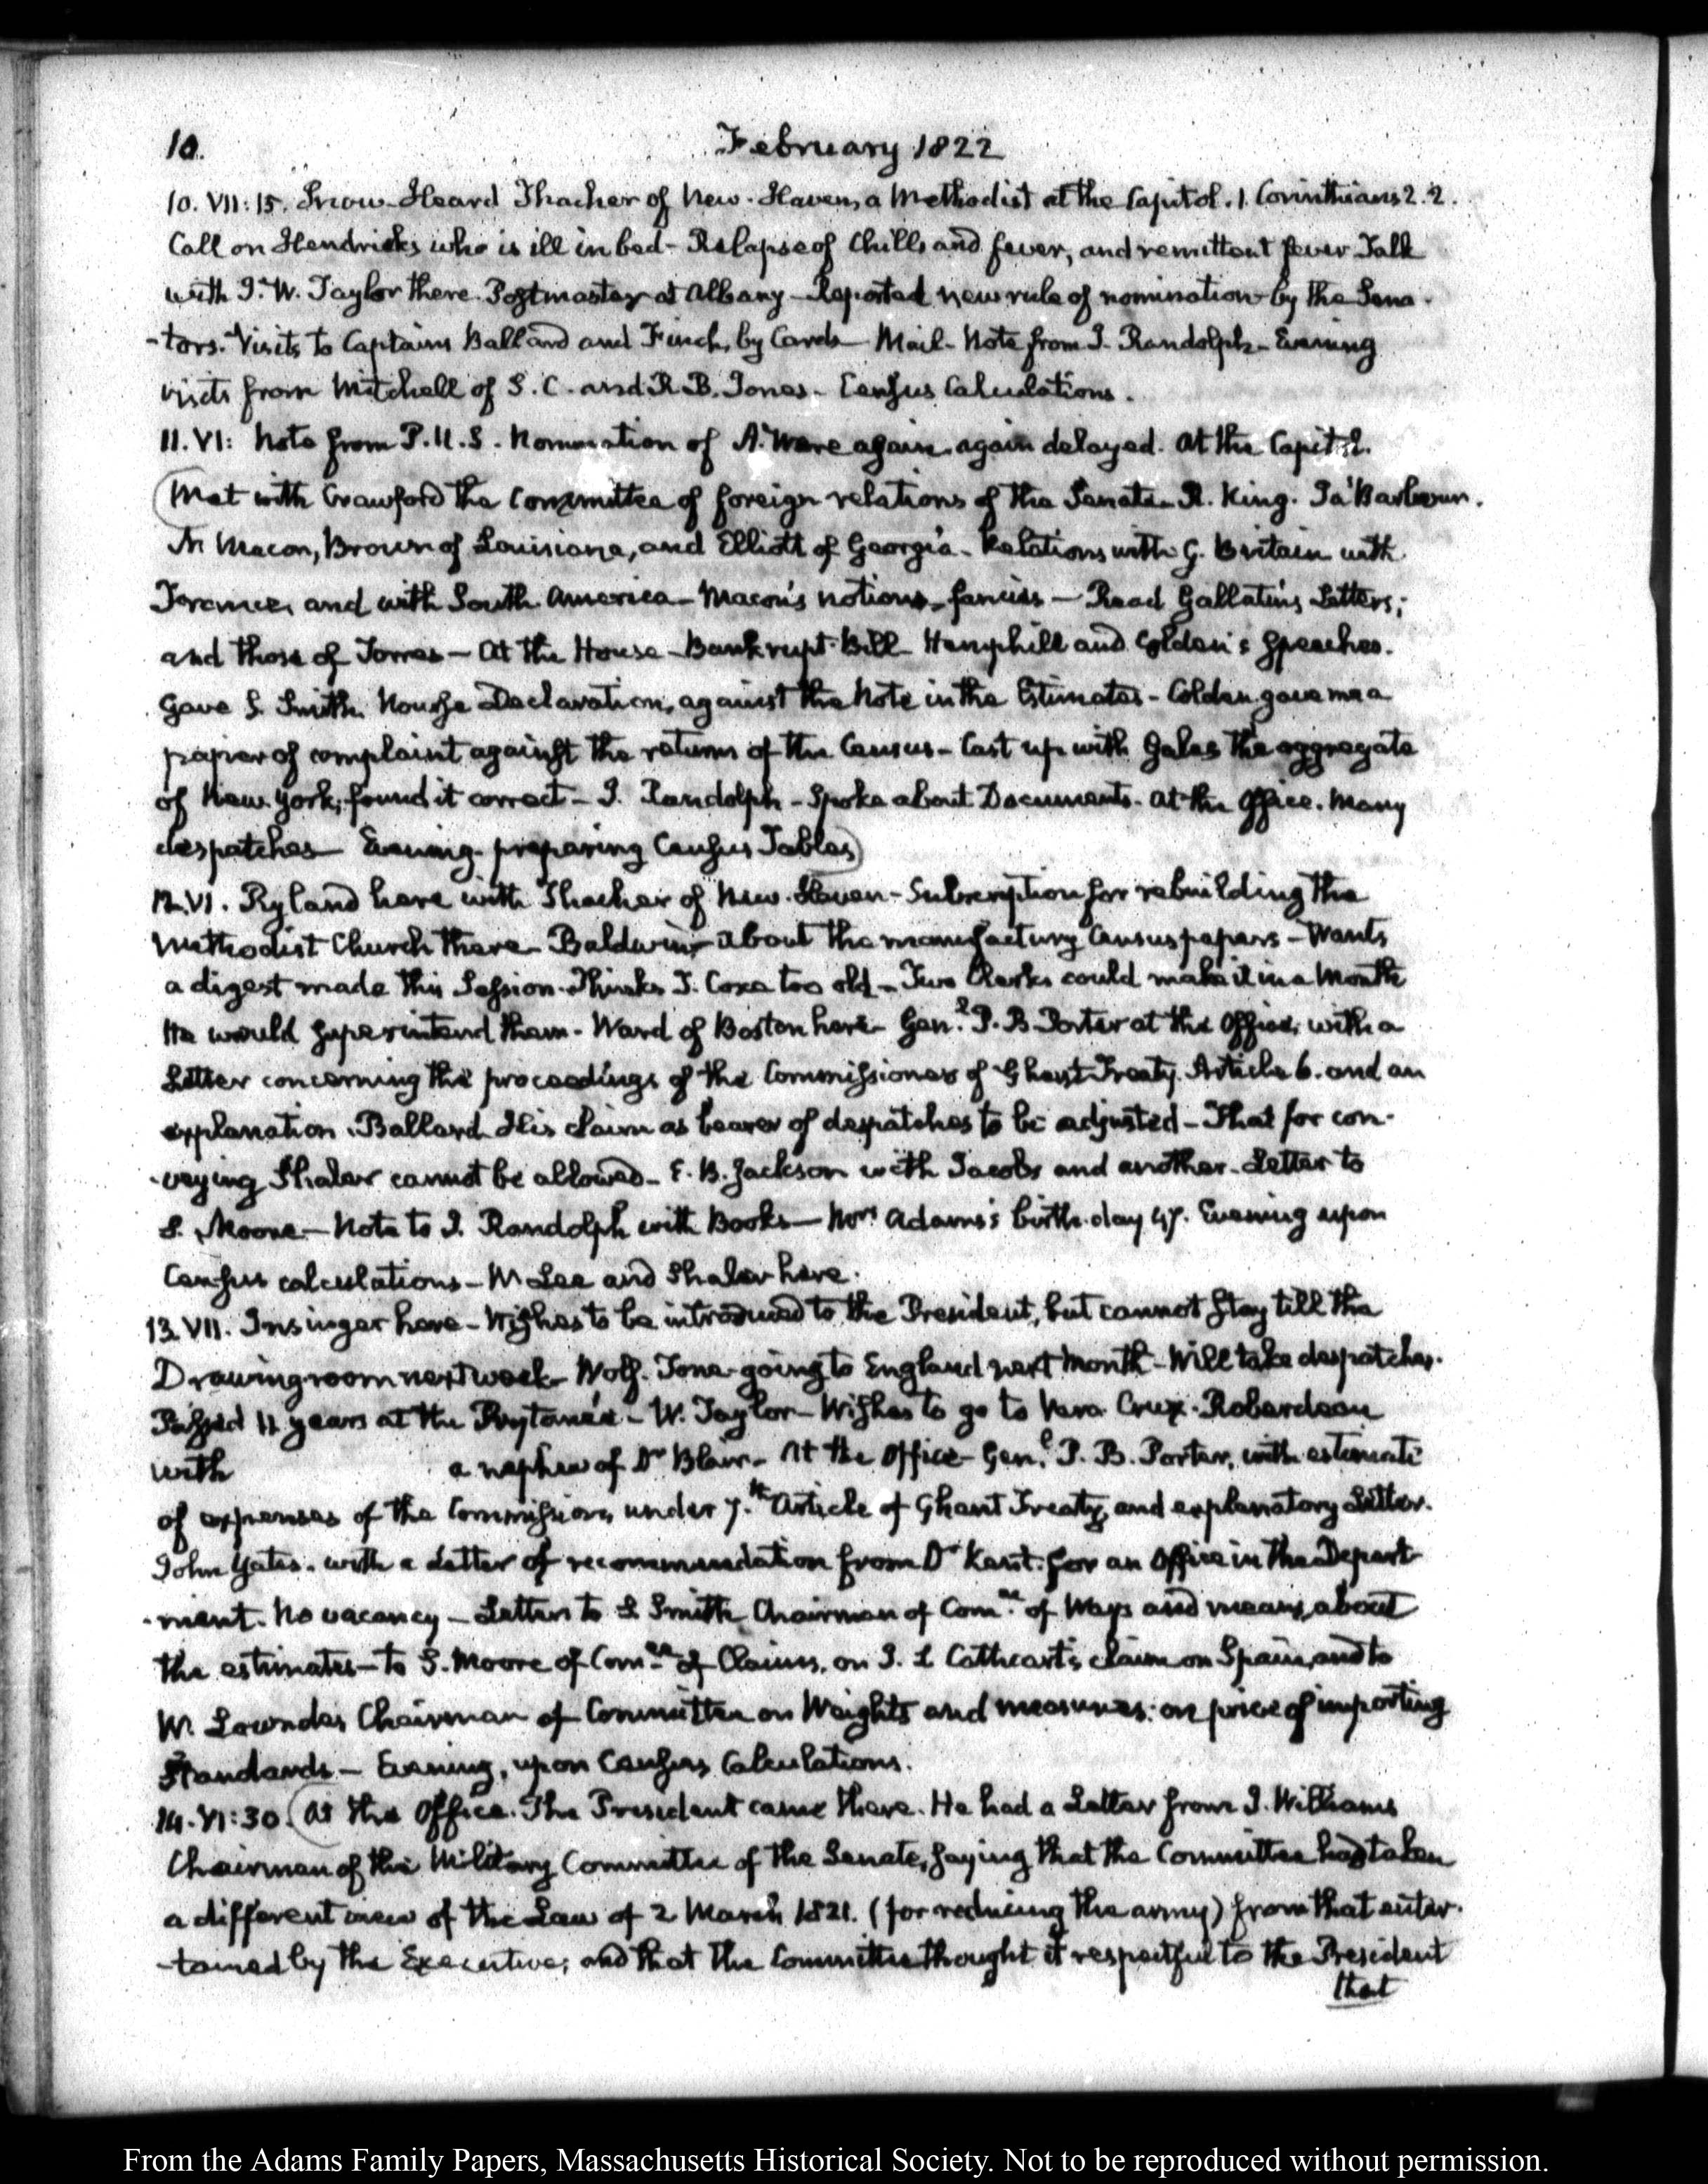 10. February 1822
10. VII:15. Snow. Heard Thacher of New-Haven, a Methodist at the Capitol. 1. Corinthians 2.2.
Call on Hendricks who is ill in bed - Relapse of Chills and fever, and remittent fever Talk
with J. W. Taylor there. Postmaster at Albany - Reported new rule of nomination by the Sena-
-tors. Visits to Captains Ballard and Finch, by Cards - Mail - Note from J. Randolph - Evening
visits from Mitchell of S. C. and R. B. Jones - Census Calculations.
11. VI: Note from P.U.S. Nomination of A. Ware again, again delayed. At the Capitol.
(Met with Crawford the Committee of foreign relations of the Senate - R. King. Ja.s Barbour.
N. Macon, Brown of Louisiana, and Elliott of Georgia - Relations with G. Britain with
France, and with South America - Macon's notions, fancies - Read Gallatin's Letters;
and those of Torres - At the House - Bankrupt Bill - Hemphill and Colden's Speeches.
Gave S. Smith Nourse Declaration, against the Note in the Estimates - Colden gave me a
paper of complaint against the returns of the Census - Cast up with Gales the aggregate
of New York; found it correct - J. Randolph - Spoke about Documents. At the Office. Many
despatches - Evening preparing Census Tables)
12. VI. Ryland here with Thacher of New-Haven - Subscription for rebuilding the
Methodist Church there - Baldwin, about the manufactury Census papers - Wants
a digest made this Session. Thinks T. Coxe too old - Two Clerks could make it in a Month
He would superintend them - Ward of Boston here - Gen.l P. B. Porter at the Office, with a
Letter concerning the proceedings of the Commissioners of Ghent Treaty. Article 6. and an
explanation. Ballard. His claim as bearer of despatches to be adjusted - That for con-
-veying Shaler cannot be allowed - E. B. Jackson with Jacobs and another. Letter to
S. Moore - Note to J. Randolph with Books - Mrs Adams's birth-day 47. Evening upon
Census calculations - W. Lee and Shaler here.
13. VII. Insinger here - Wishes to be introduced to the President, but cannot stay till the
Drawing-room next week - Wolf. Tone going to England next month - Will take despatches.
Passed 11 years at the Prytanée - W. Taylor - Wishes to go to Vera Cruz. Robardeau
with a nephew of Dr Blair - At the Office - Gen.l P. B. Porter, with estimate
of expenses of the Commission, under 7.th Article of Ghent Treaty, and explanatory Letter.
John Yates. with a Letter of recommendation from Dr Kent. for an Office in the Depart-
-ment. No vacancy - Letters to S. Smith Chairman of Com.ee of Ways and means, about
the estimates - to S. Moore of Com.ee of Claims, on J. L Cathcart's claim on Spain, and to
W. Lowndes Chairman of Committee on Weights and measures: on price of importing
Standards - Evening, upon Census Calculations.
14. VI:30. (At the Office. The President came there. He had a Letter from J. Williams
Chairman of the Military Committee of the Senate, saying that the Committee had taken
a different view of the Law of 2 March 1821. (for reducing the army) from that enter-
-tained by the Executive; and that the Committee thought it respectful to the President
that
From the Adams Family Papers, Massachusetts Historical Society. Not to be reproduced without permission.